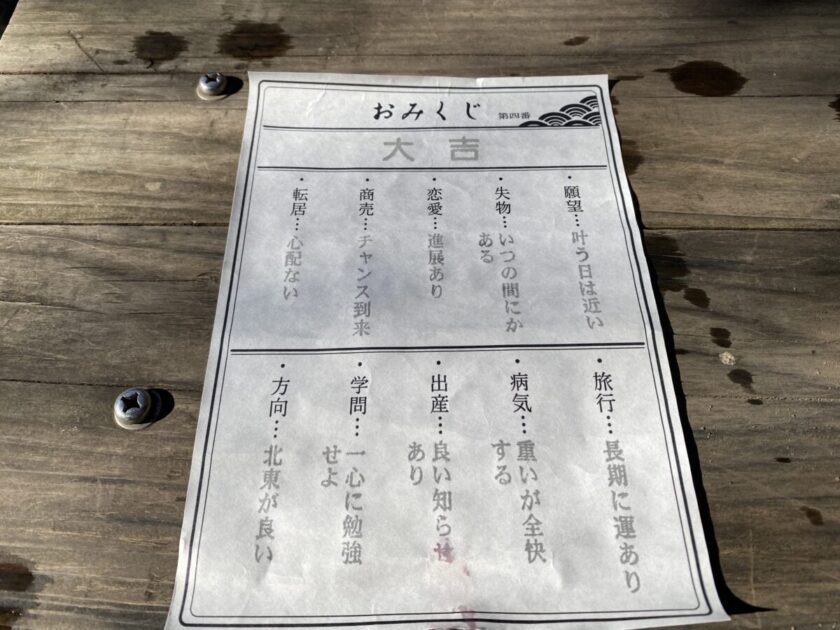 おみくじ 第四番
大吉
・願望…叶う日は近い
・失物…いつの間にか
ある
・恋愛…進展あり
・商売…チャンス到来
・転居…心配ない
・旅行…長期に運あり
・病気…重いが全快
する
・出産…良い知らせ
あり
・学問…一心に勉強
せよ
・方向…北東が良い